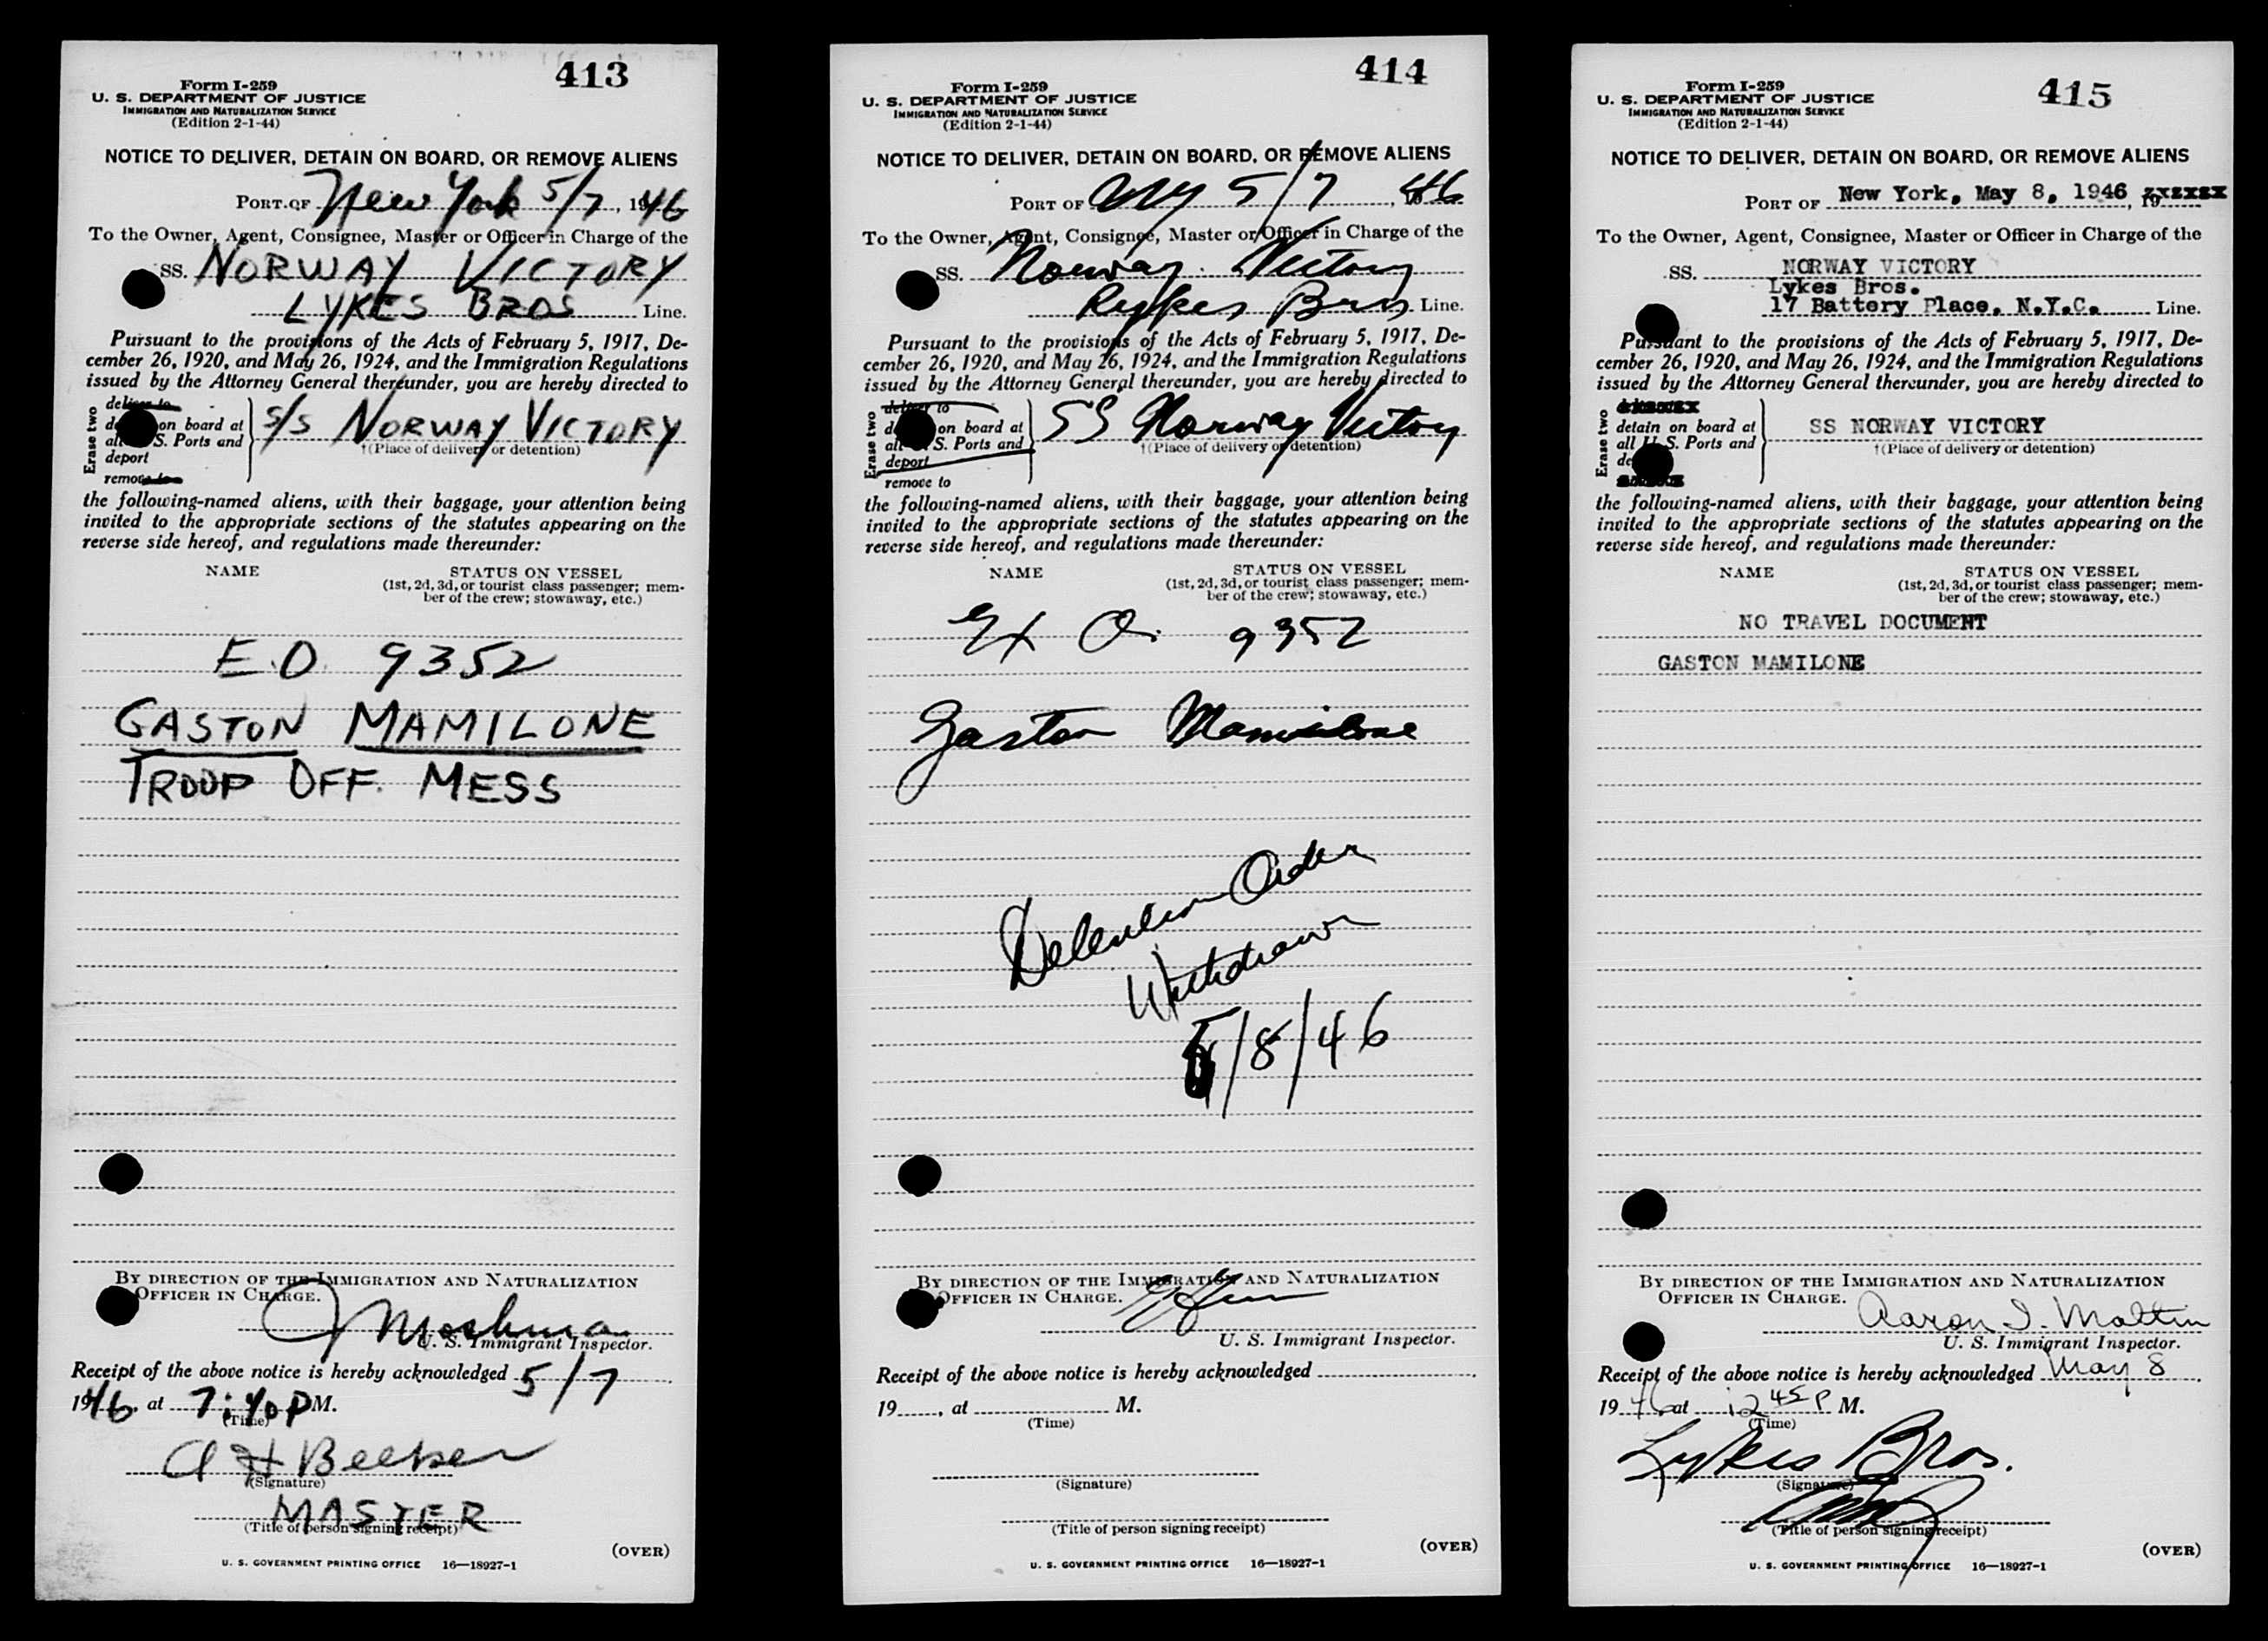 413
Form I-259
U. S. DEPARTMENT OF JUSTICE
IMMIGRATION AND NATURALIZATION SERVICE
(Edition 2-1-44)
NOTICE TO DELIVER, DETAIN ON BOARD, OR REMOVE ALIENS
PORT OF New York 5/7, 1946
To the Owner, Agent, Consignee, Master or Officer in Charge of the
SS. NORWAY VICTORY
LYKES BROS Line.
Pursuant to the provisions of the Acts of February 5, 1917, De-
cember 26, 1920, and May 26, 1924, and the Immigration Regulations
issued by the Attorney General thereunder, you are hereby directed to
Erase two
deliver to
on board at
S. Ports and
deport
remove to
S/S NORWAY VICTORY
†(Place of delivery or detention)
the following-named aliens, with their baggage, your attention being
invited to the appropriate sections of the statutes appearing on the
reverse side hereof, and regulations made thereunder:
NAME STATUS ON VESSEL
(1st, 2d, 3d, or tourist class passenger; mem-
ber of the crew; stowaway, etc.)
E.O. 9352
GASTON MAMILONE
TROOP OFF. MESS
BY DIRECTION OF THE IMMIGRATION AND NATURALIZATION
OFFICER IN CHARGE.
J Moshman
U. S. Immigrant Inspector.
Receipt of the above notice is hereby acknowledged 5/7
1946, at 7:40 P M.
(Time)
(Signature)
MASTER
(Title of person signing receipt)
(OVER)
U. S. GOVERNMENT PRINTING OFFICE 16—18927-1
414
Form I-259
U. S. DEPARTMENT OF JUSTICE
IMMIGRATION AND NATURALIZATION SERVICE
(Edition 2-1-44)
NOTICE TO DELIVER, DETAIN ON BOARD, OR REMOVE ALIENS
PORT OF NY 5/7, 1946
To the Owner, Agent, Consignee, Master or Officer in Charge of the
SS. Norway Victory
Lykes Bros Line.
Pursuant to the provisions of the Acts of February 5, 1917, De-
cember 26, 1920, and May 26, 1924, and the Immigration Regulations
issued by the Attorney General thereunder, you are hereby directed to
Erase two
deliver to
on board at
S. Ports and
deport
remove to
SS Norway Victory
†(Place of delivery or detention)
the following-named aliens, with their baggage, your attention being
invited to the appropriate sections of the statutes appearing on the
reverse side hereof, and regulations made thereunder:
NAME STATUS ON VESSEL
(1st, 2d, 3d, or tourist class passenger; mem-
ber of the crew; stowaway, etc.)
Ex O. 9352
Gaston Mamilone
Detention Order
Withdrawn
5/8/46
BY DIRECTION OF THE IMMIGRATION AND NATURALIZATION
OFFICER IN CHARGE.
U. S. Immigrant Inspector.
Receipt of the above notice is hereby acknowledged
19____, at ____ M.
(Time)
(Signature)
(Title of person signing receipt)
(OVER)
U. S. GOVERNMENT PRINTING OFFICE 16—18927-1
415
Form I-259
U. S. DEPARTMENT OF JUSTICE
IMMIGRATION AND NATURALIZATION SERVICE
(Edition 2-1-44)
NOTICE TO DELIVER, DETAIN ON BOARD, OR REMOVE ALIENS
PORT OF New York, May 8, 1946, 19xxxxxx
To the Owner, Agent, Consignee, Master or Officer in Charge of the
SS. NORWAY VICTORY
Lykes Bros.
17 Battery Place, N.Y.C. Line.
Pursuant to the provisions of the Acts of February 5, 1917, De-
cember 26, 1920, and May 26, 1924, and the Immigration Regulations
issued by the Attorney General thereunder, you are hereby directed to
Erase two
detain on board at
all U. S. Ports and
SS NORWAY VICTORY
†(Place of delivery or detention)
the following-named aliens, with their baggage, your attention being
invited to the appropriate sections of the statutes appearing on the
reverse side hereof, and regulations made thereunder:
NAME STATUS ON VESSEL
(1st, 2d, 3d, or tourist class passenger; mem-
ber of the crew; stowaway, etc.)
NO TRAVEL DOCUMENT
GASTON MAMILONE
BY DIRECTION OF THE IMMIGRATION AND NATURALIZATION
OFFICER IN CHARGE.
Aaron I. Maltin
U. S. Immigrant Inspector.
Receipt of the above notice is hereby acknowledged May 8
1946, at 12 45 P M.
(Time)
Lykes Bros.
(Signature)
(Title of person signing receipt)
(OVER)
U. S. GOVERNMENT PRINTING OFFICE 16—18927-1